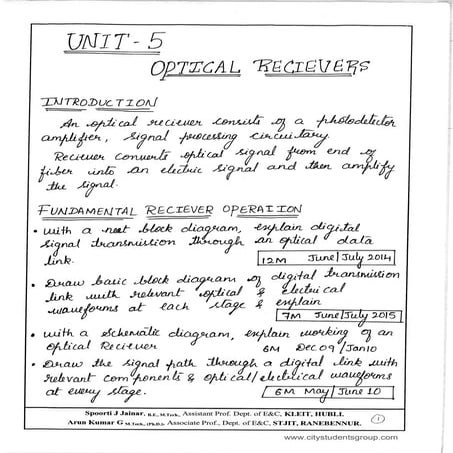 UNIT - 5
OPTICAL RECIEVERS
INTRODUCTION
An optical reciever consists of a photodetector
amplifier, signal processing circuitary.
Reciever converts optical signal from end of
fiber into an electric signal and then amplify
the signal.
FUNDAMENTAL RECIEVER OPERATION
• With a neat block diagram, explain digital
signal transmission through an optical data
link.
12M June/July 2014
• Draw basic block diagram of digital transmission
link with relevant optical & electrical
waveforms at each stage & explain
7M June/July 2015
• With a schematic diagram, explain working of an
Optical Reciever
6M Dec 09/Jan10
• Draw the signal path through a digital link with
relevant components & optical/electrical waveforms
at every stage.
6M May/June 10
Spoorti J Jainar. B.E., M.Tech., Assistant Prof. Dept. of E&C, KLEIT, HUBLI.
Arun Kumar G M.Tech., (Ph.D.), Associate Prof., Dept. of E&C, STJIT, RANEBENNUR.
1
www.citystudentsgroup.com